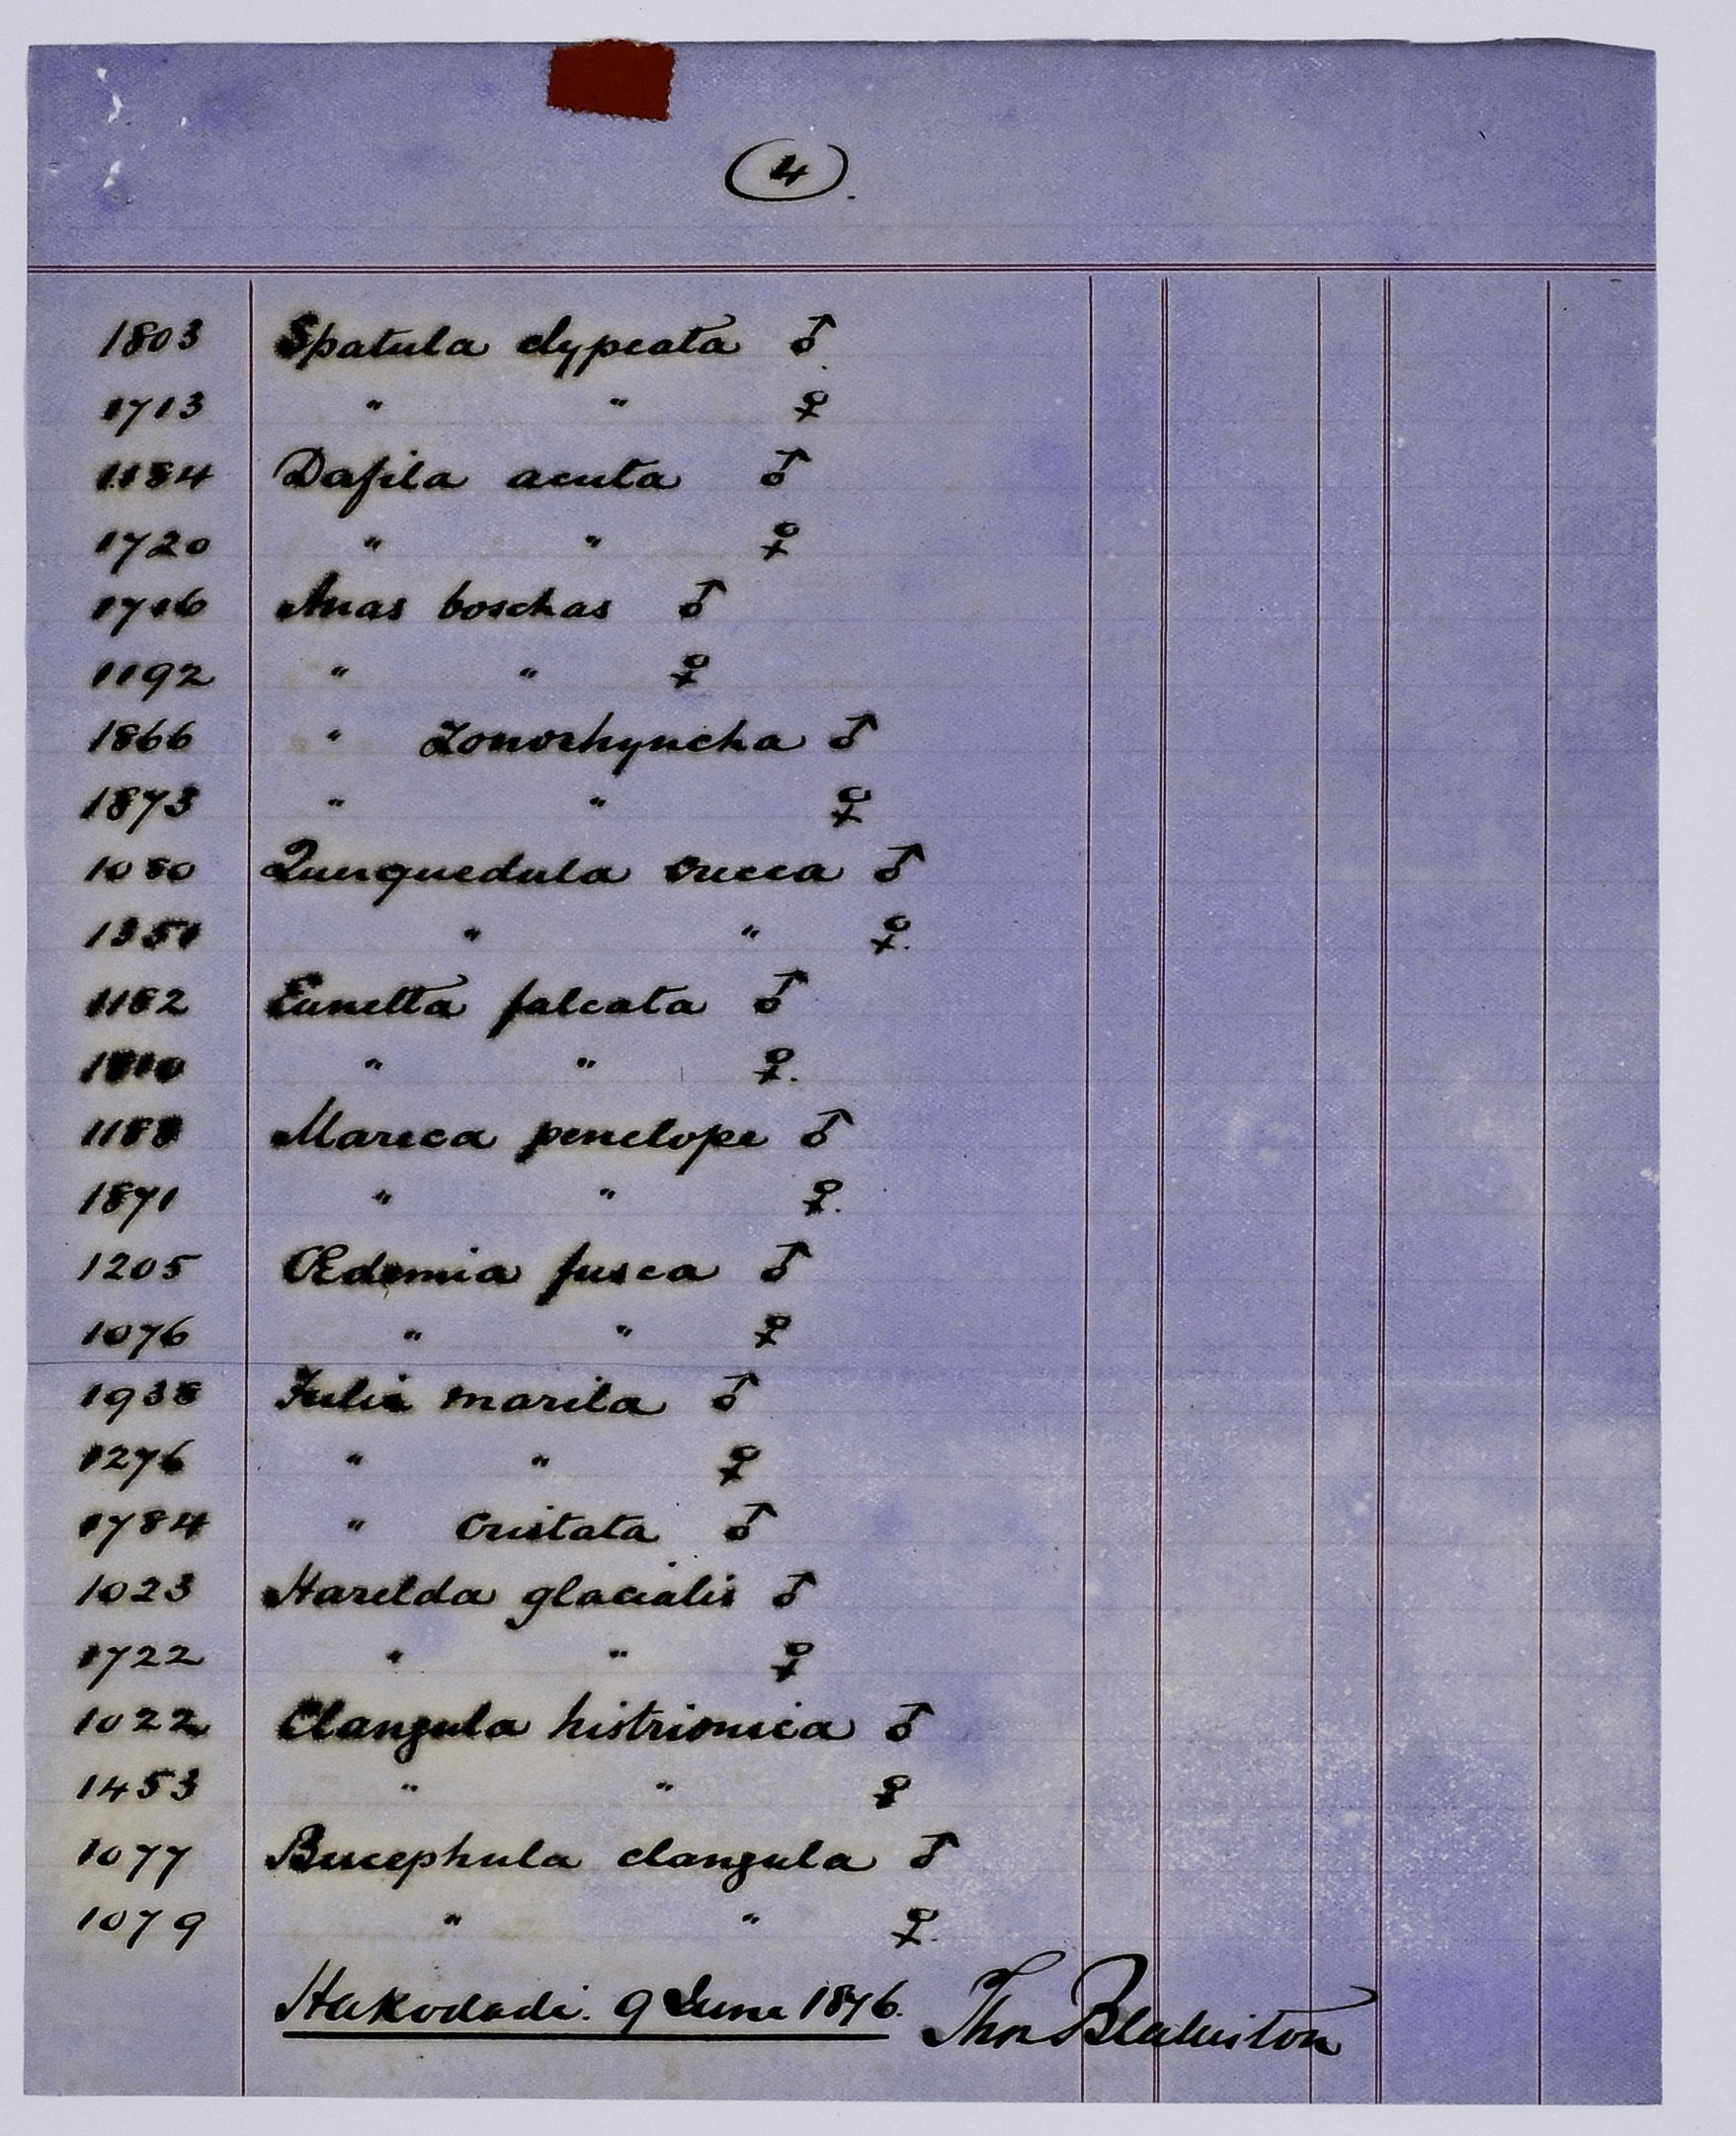 (4).
1803 Spatula clypeata ♂
1713 " " ♀
1184 Dafila acuta ♂
1720 " " ♀
1716 Anas boschas ♂
1192 " " ♀
1866 " zonorhyncha ♂
1873 " " ♀
1080 Querquedula crecca ♂
1351 " " ♀.
1182 Eunetta falcata ♂
" " ♀.
1188 Mareca penelope ♂
1871 " " ♀.
1205 Œdemia fusca ♂
1076 " " ♀
1938 Fulix marila ♂
1276 " " ♀
1784 " cristata ♂
1023 Harelda glacialis ♂
1722 " " ♀
1022 Clangula histrionica ♂
1453 " " ♀
1077 Bucephula clangula ♂
1079 " " ♀.
Hakodadi. 9 June 1876. Thos Blakiston